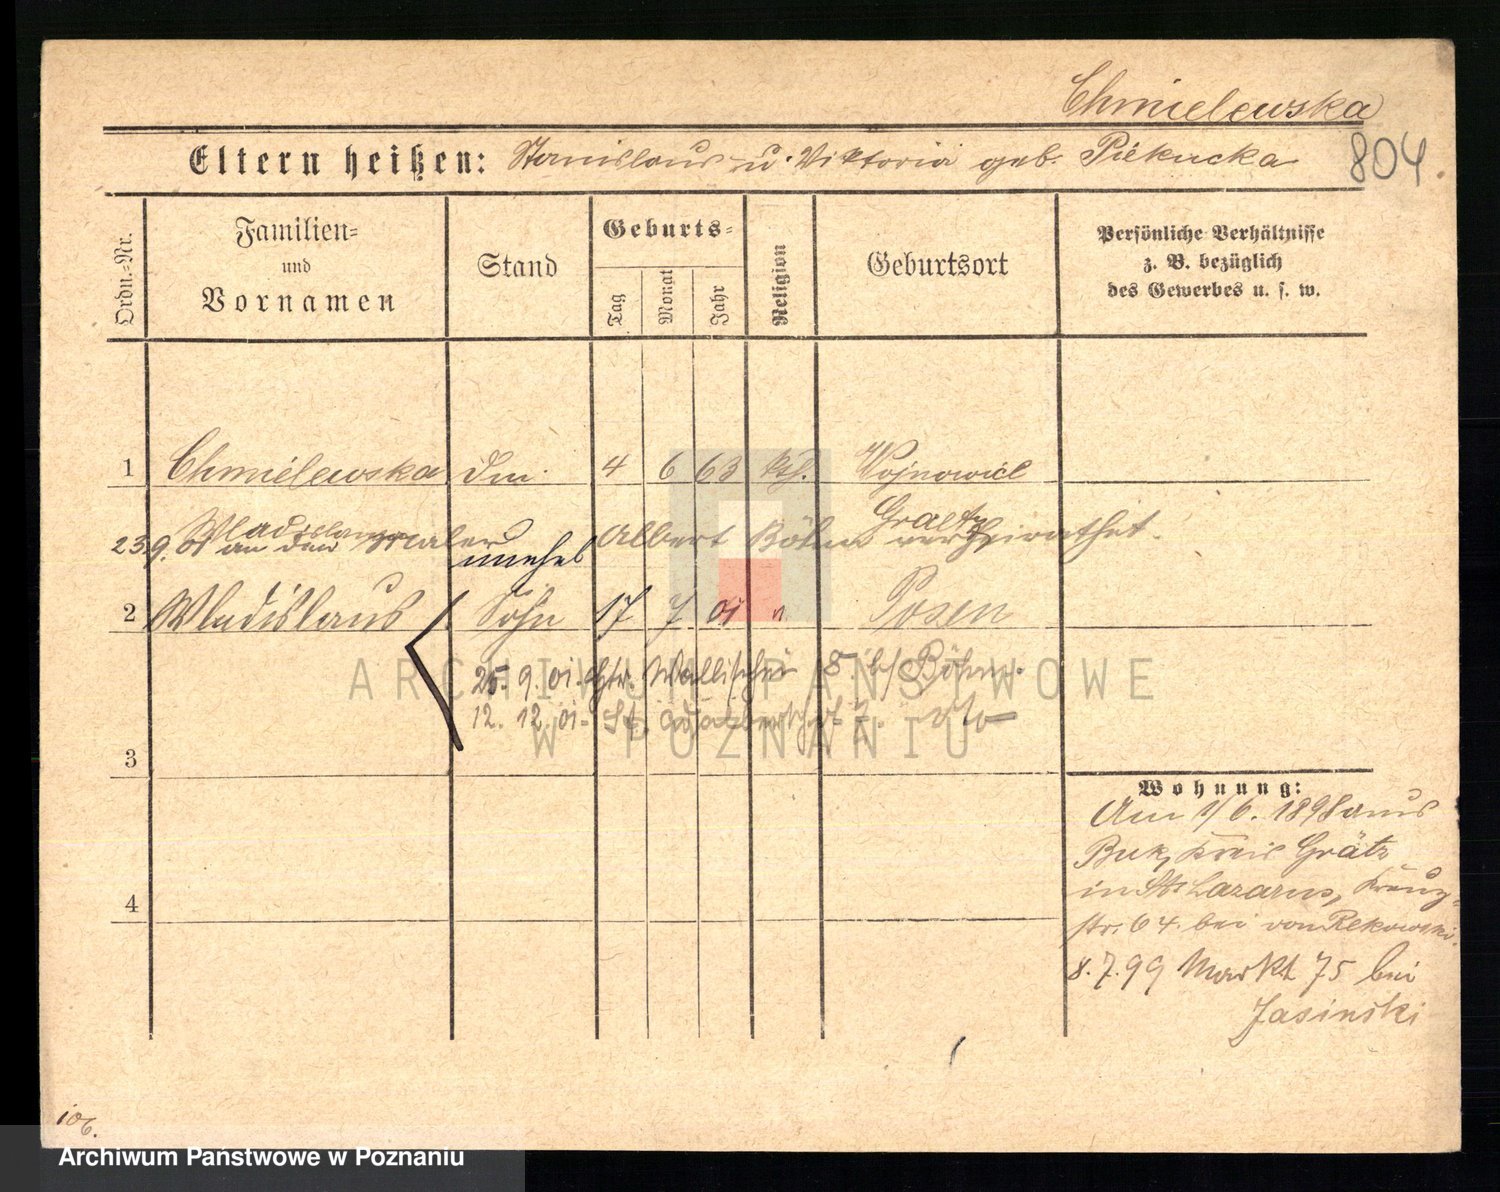 Chmielewska
Eltern heißen: Stanislaus u. Viktoria geb. Piekucka
804.
Ordn.-Nr.
Familien-
und
Vornamen
Stand
Geburts-
Tag
Monat
Jahr
Religion
Geburtsort
Persönliche Verhältnisse
z. B. bezüglich
des Gewerbes u. s. w.
1 Chmielewska 4 6 63 kth. Wojnowice
Graetz
Wladislawa
23.9.01 an den Maler Albert Böhm verheirathet.
unehel
2 Wladislaus Sohn 17 7 01 " Posen
25. 9. 01. Wallischei 8 b/ Böhm.
12. 12. 01. St. Adalbertstr. 7. dto
3
4
Wohnung:
Am 1/6. 1898 aus
Buk, Kreis Grätz
in St. Lazarus, Kreuz-
str. 64. bei von Rekowski.
8.7.99 Markt 75 bei
Jasinski
106.
ARCHIWUM PAŃSTWOWE
W POZNANIU
Archiwum Państwowe w Poznaniu